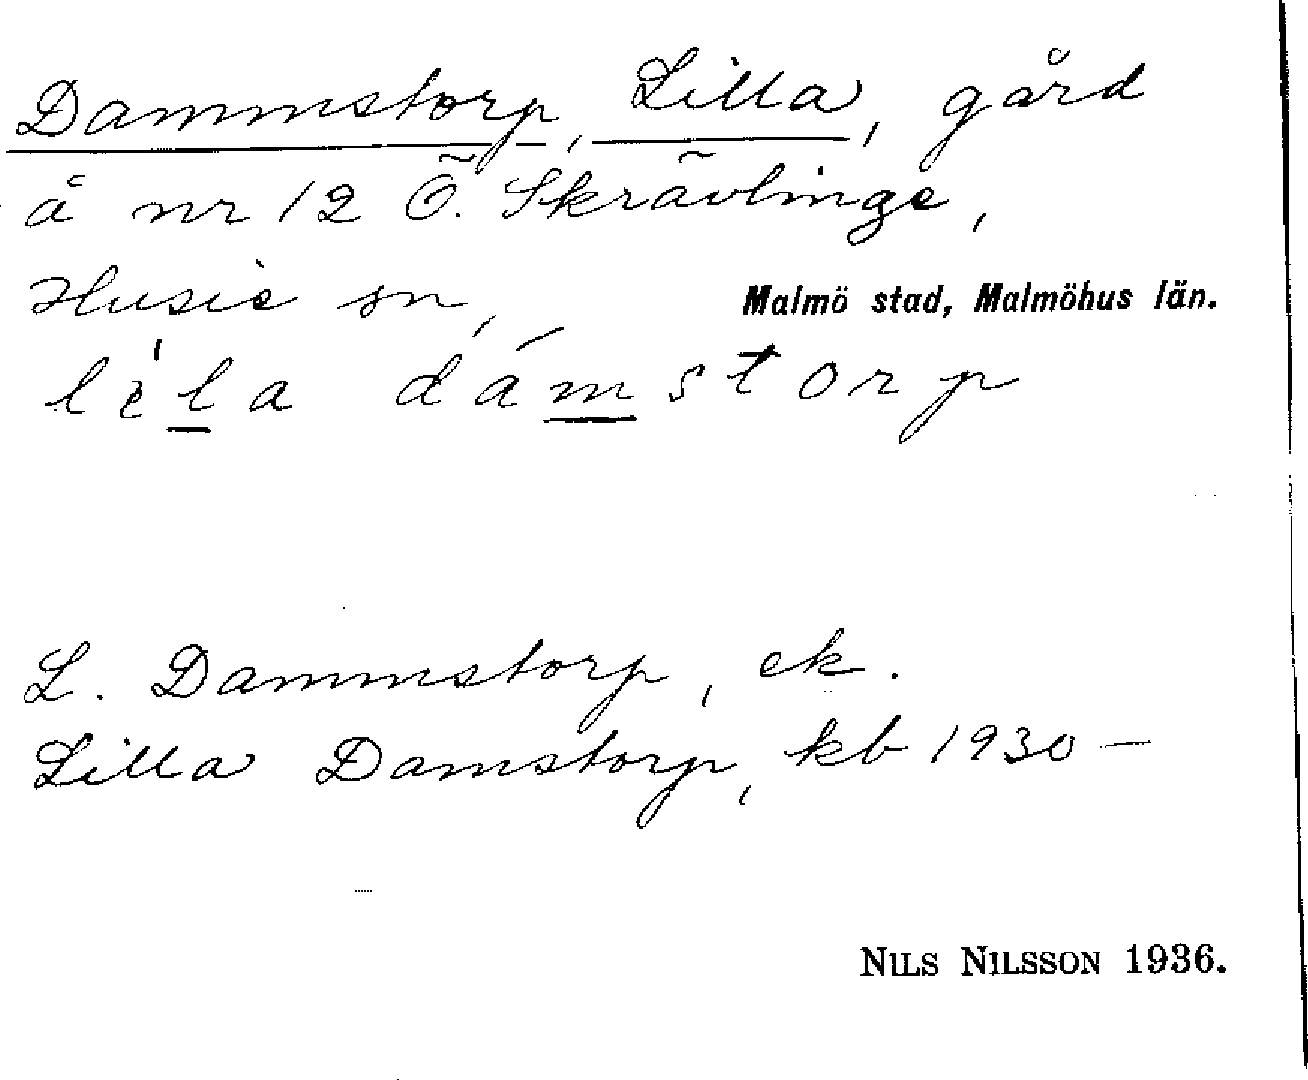 Dammstorp, Lilla, gård
å nr 12 Ö. Skrävlinge,
Husie sn, Malmö stad, Malmöhus län.
lila dámstorp
L. Dammstorp, ek.
Lilla Damstorp, kb 1930 —
NILS NILSSON 1936.